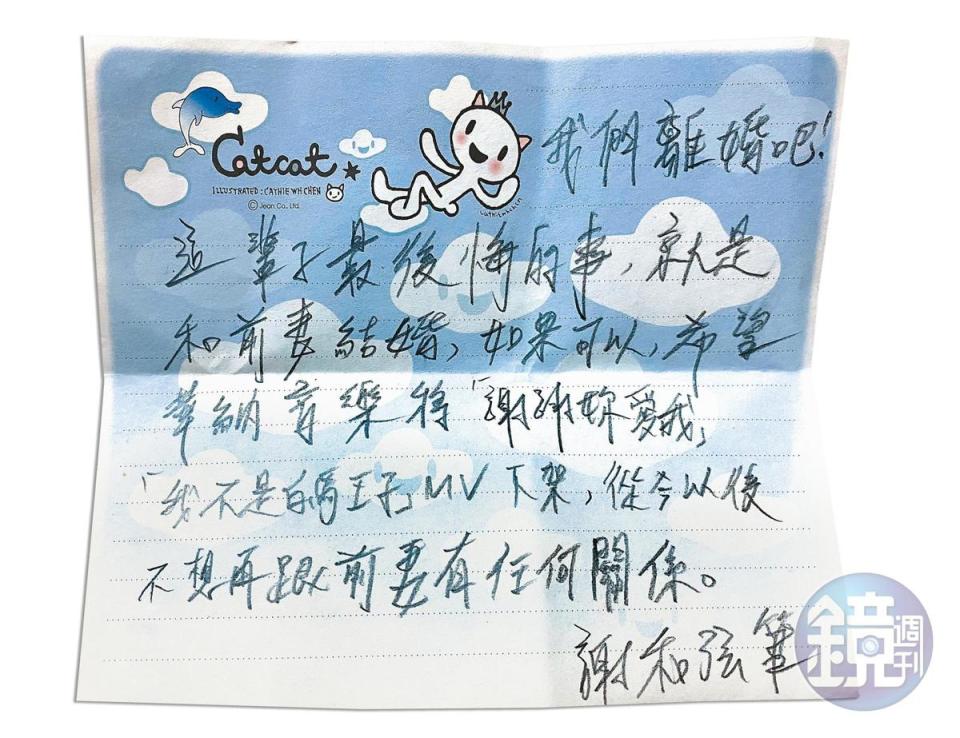 Catcat
ILLUSTRATED : CATHIE WH CHEN
© Jean Co., Ltd.
我們離婚吧!
這輩子最後悔的事,就是
和前妻結婚,如果可以,希望
華納音樂將「謝謝妳愛我」
「我不是白馬王子」MV下架,從今以後
不想再跟前妻有任何關係。
謝和弦筆
鏡週刊